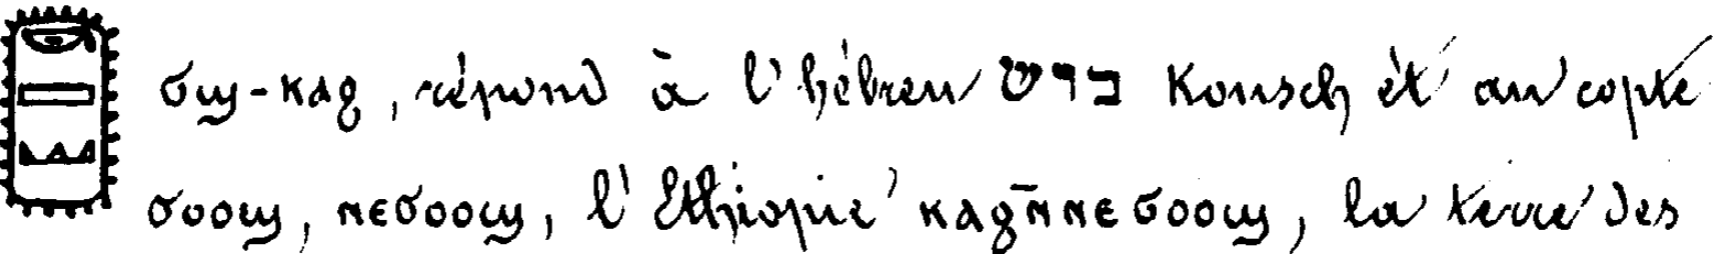 ϭϣ-ⲕⲁϩ, répond à l'hébreu כוש Kousch et au copte
ϭⲟⲟϣ, ⲛⲉϭⲟⲟϣ, l'Ethiopie ⲕⲁϩⲛ̄ⲛⲉϭⲟⲟϣ, la terre des